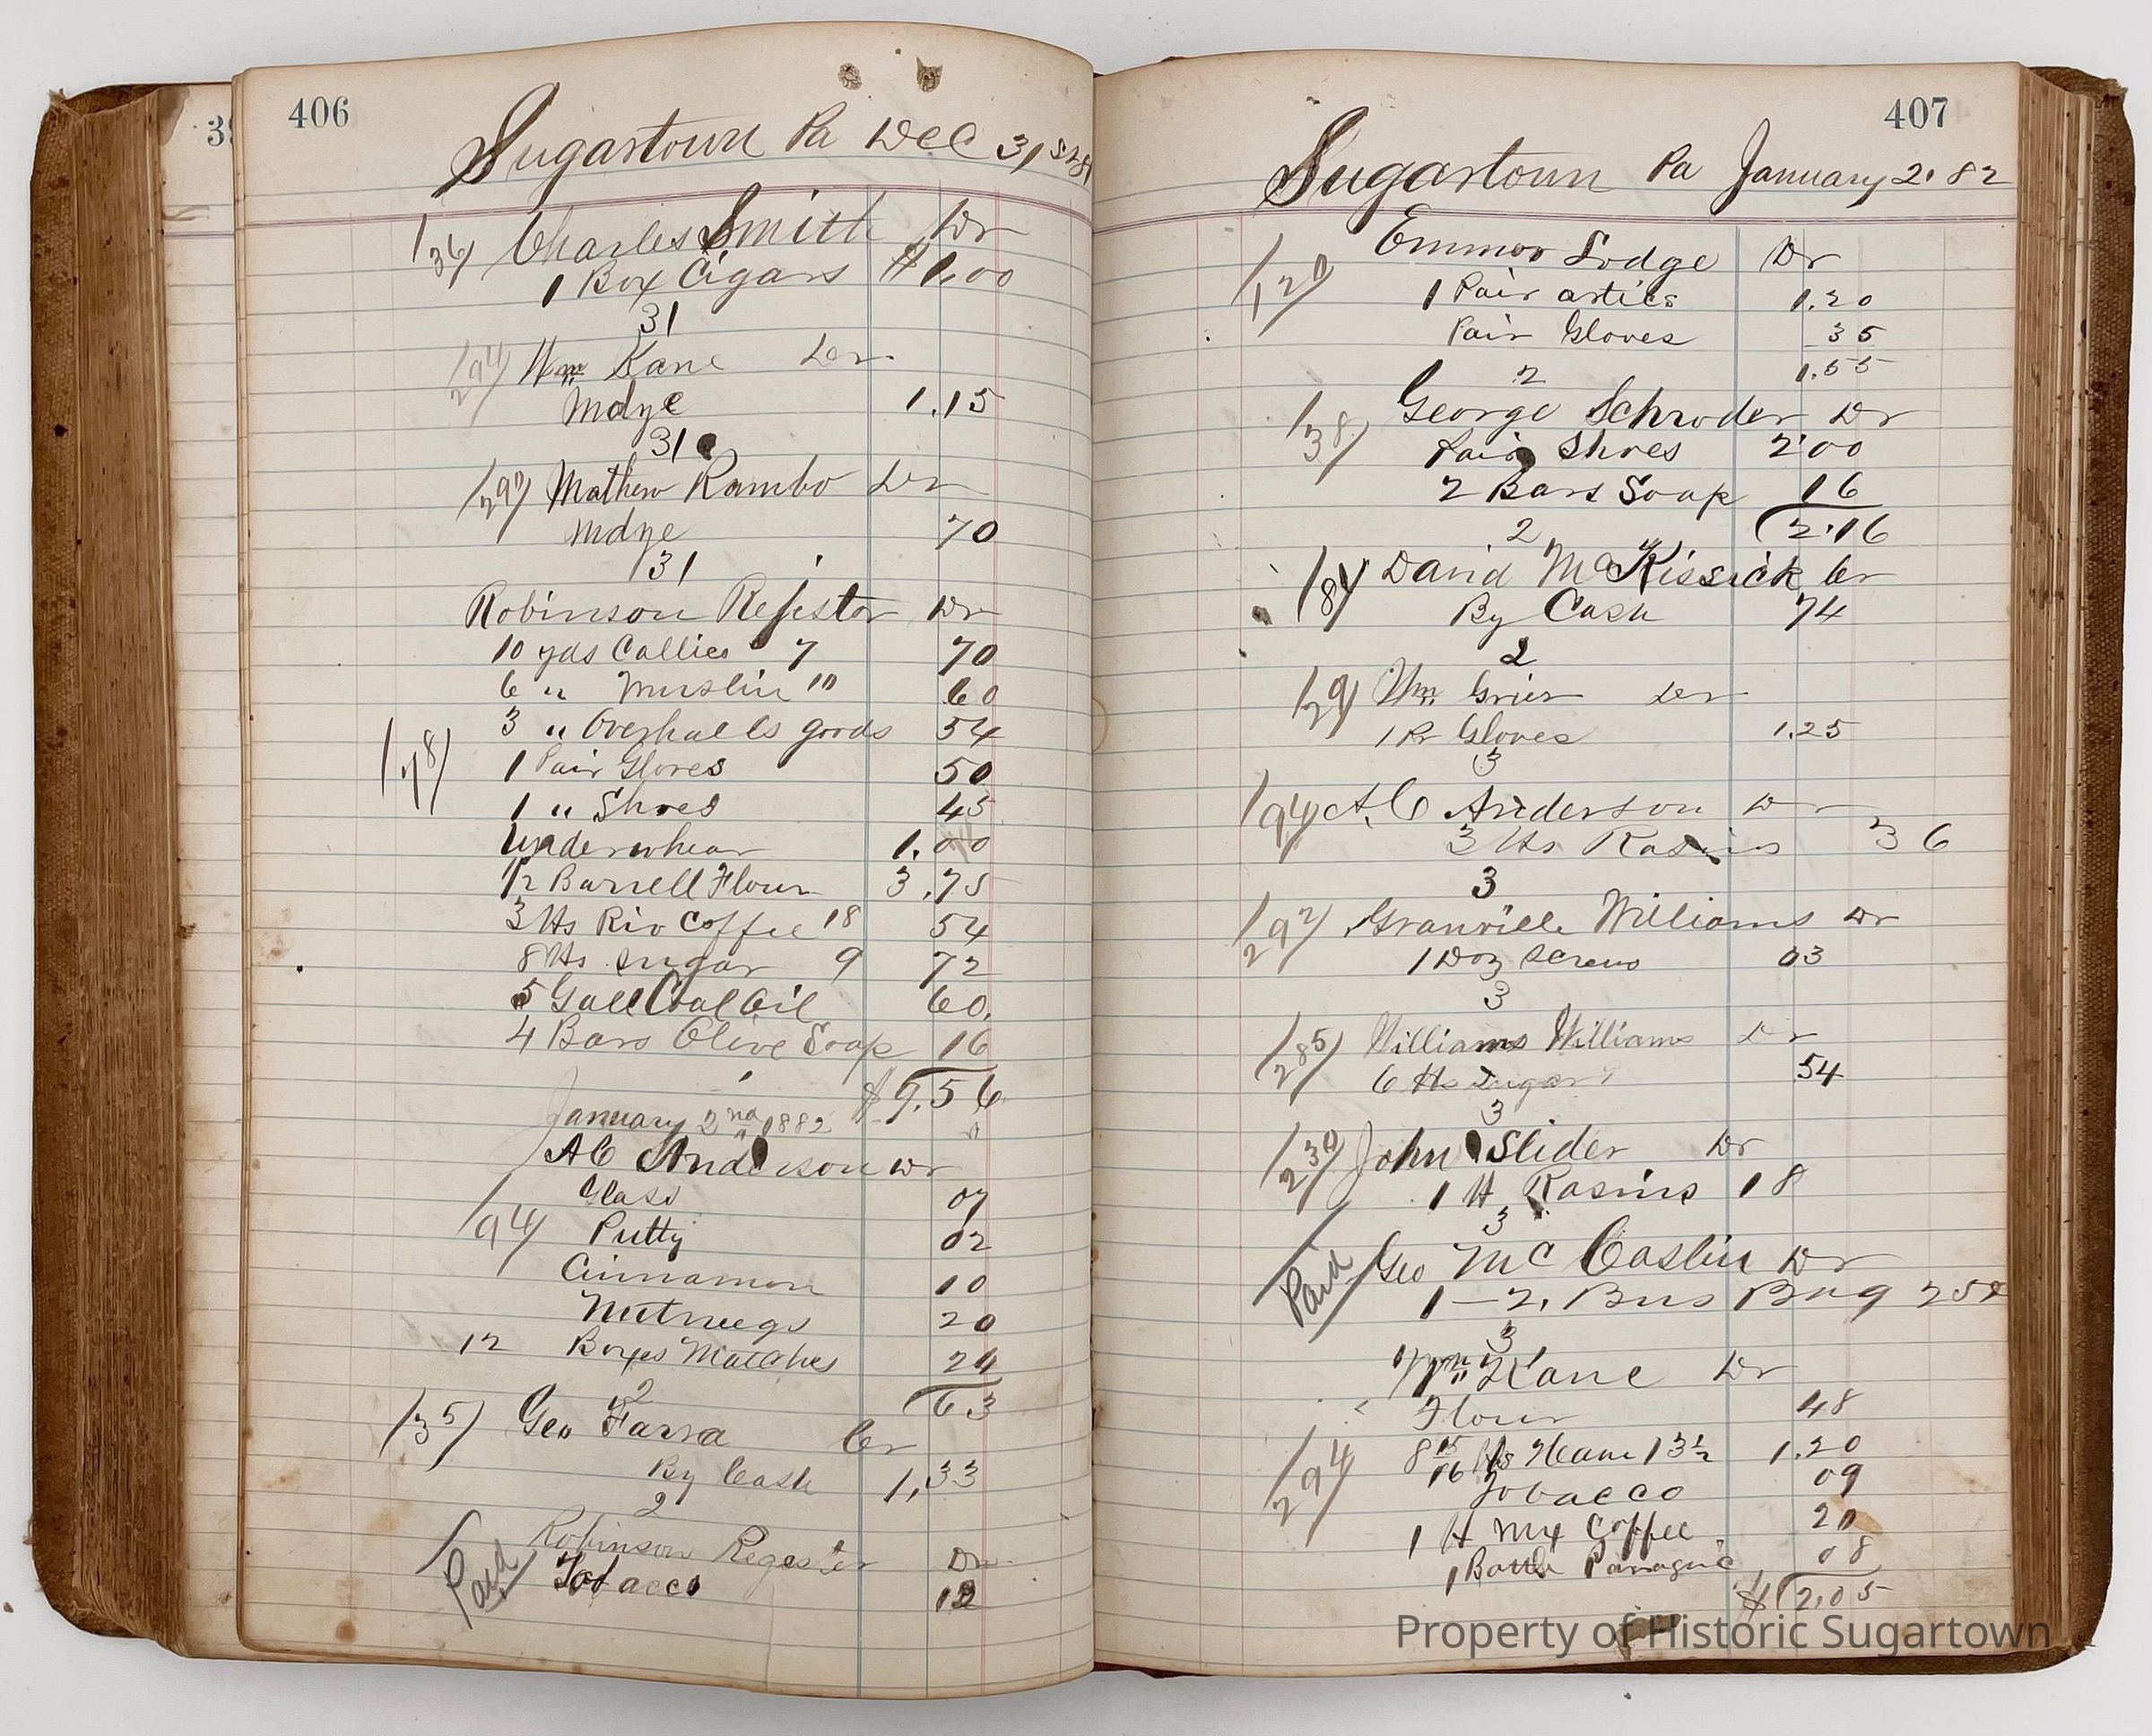 406
Sugartown Pa Dec 31st 81
136 Charles Smith Dr
1 Box Cigars $1.00
31
294 Wm Kane Dr
Mdze 1.15
31
297 Mathew Rambo Dr
Mdze 70
31
Robinson Dr
10 yds Callico 7 70
6 " Muslin 10 60
3 " Overhalls goods 54
178
1 Pair Gloves 50
1 " Shoes 45
Underwhear 1.00
1/2 Barrell Flour 3.75
3 lbs Rio Coffee 18 54
8 lbs sugar 9 72
5 Gall Coal Oil 60.
4 Bars Olive Soap 16
$9.56
January 2nd 1882
A C Anderson Dr
Glass 07
194 Putty 02
Cinnamon 10
Nutmegs 20
12 Boxes Matches 24
63
2
135 Geo Farra Cr
By Cash 1,33
2
Robinson Register Dr
Paid Tobacco 12
407
Sugartown Pa January 2. 82
Emmor Lodge Dr
120
1 Pair artics 1.20
Pair Gloves 35
1.55
2
George Schroder Dr
138
Pair Shoes 2.00
2 Bars Soap 16
2.16
2
184 David McKissick Cr
By Cash 74
2
Wm Grier Dr
1 Pr Gloves 1.25
3
194 A. C Anderson Dr
3 lbs Rasins 36
3
292 Granville Williams Dr
1 Doz Screws 03
3
285 Williams Williams Dr
6 lbs Sugar 9 54
3
230 John Slider Dr
1 lb Rasins 18
3
Paid Geo Mc Caslin Dr
1 – 2. Bus Bag
3
Wm Kane Dr
Flour 48
294
8 15/16 lbs Ham 13 1/2 1.20
Tobacco 09
1 lb Coffee 20
1 Bottle 08
$2.05
Property of Historic Sugartown